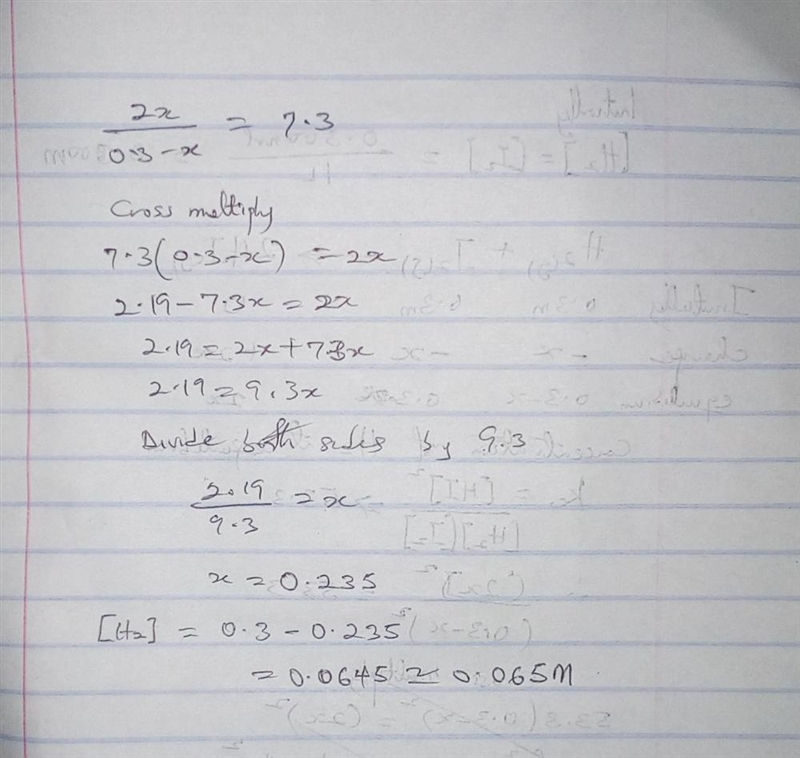 2x / 0.3 - x = 7.3
Cross multiply
7.3(0.3 - x) = 2x
2.19 - 7.3x = 2x
2.19 = 2x + 7.3x
2.19 = 9.3x
Divide both sides by 9.3
2.19 / 9.3 = x
x = 0.235
[H₂] = 0.3 - 0.235
= 0.0645 ≃ 0.065M